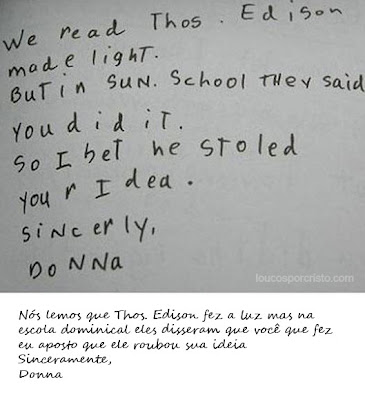 We read Thos. Edison
made light.
But in SUN. School THey said
you did iT.
So I bet he stoled
your Idea.
SiNcerly,
DoNNa
loucosporcristo.com
Nós lemos que Thos. Edison fez a luz mas na
escola dominical eles disseram que você que fez
eu aposto que ele roubou sua ideia
Sinceramente,
Donna